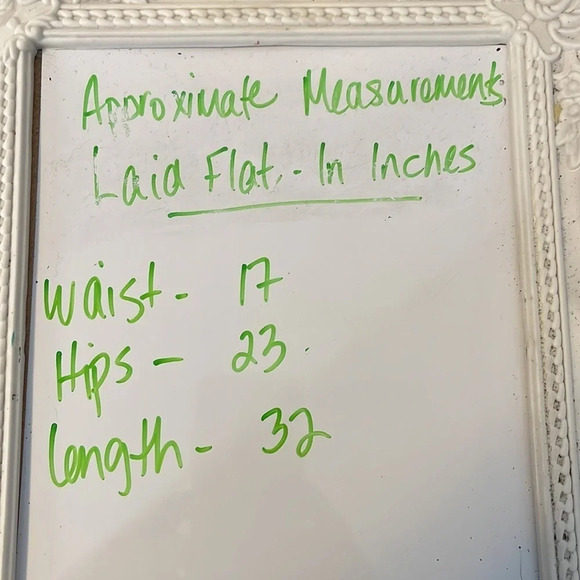 Approximate Measurements
Laid Flat - In Inches
Waist - 17
Hips - 23
Length - 32